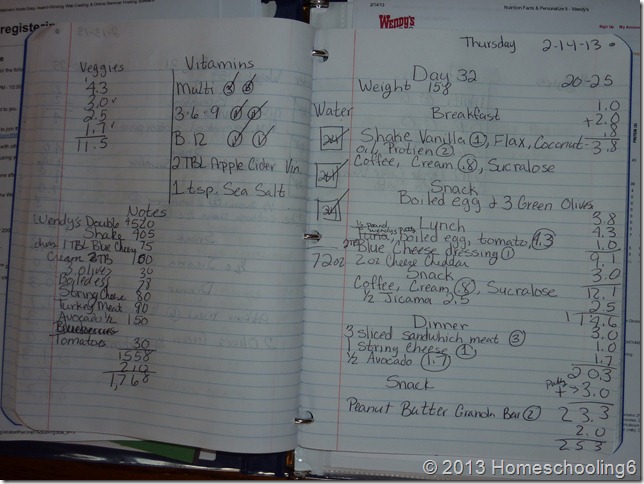 registerin
2/14/13
Nutrition Facts & Personalize It - Wendy's
Wendy's
Sign Up
My Account
Veggies
4.3
3.0
2.5
1.7
11.5
Vitamins
Multi
3·6·9
B 12
2 TBL Apple Cider Vin
1 tsp. Sea Salt
Notes
Wendy's Double 520
Shake 405
1 TBL Blue Chees 75
Cream 2 TB 100
3 olives 30
Boiled egg 78
String Cheese 80
Turkey Meat 90
Avocado 1/2 150
Blueberries
Tomatoes 30
1558
210
1,768
Thursday 2-14-13
Day 32 20-25
Weight 158
Water
24
24
24
72oz
Breakfast
Shake Vanilla (1), Flax, Coconut
Oil, Protien (2)
Coffee, Cream (.8), Sucralose
1.0
+2.0
.8
3.8
Snack
Boiled egg & 3 Green Olives
Lunch
1/2 pound wendys patty
Tuna, boiled egg, tomato, (4.3)
2TB Blue Cheese dressing (1)
2 oz Cheese Cheddar
3.8
4.3
1.0
9.1
3.0
12.1
2.5
Snack
Coffee, Cream (.8), Sucralose
1/2 Jicama 2.5
Dinner
3 sliced sandwhich meat (3)
1 String Cheese (1)
1/2 Avocado (1.7)
14.6
3.0
1.0
1.7
20.3
Patty
+ 3.0
23.3
2.0
25.3
Snack
Peanut Butter Granola Bar (2)
© 2013 Homeschooling6